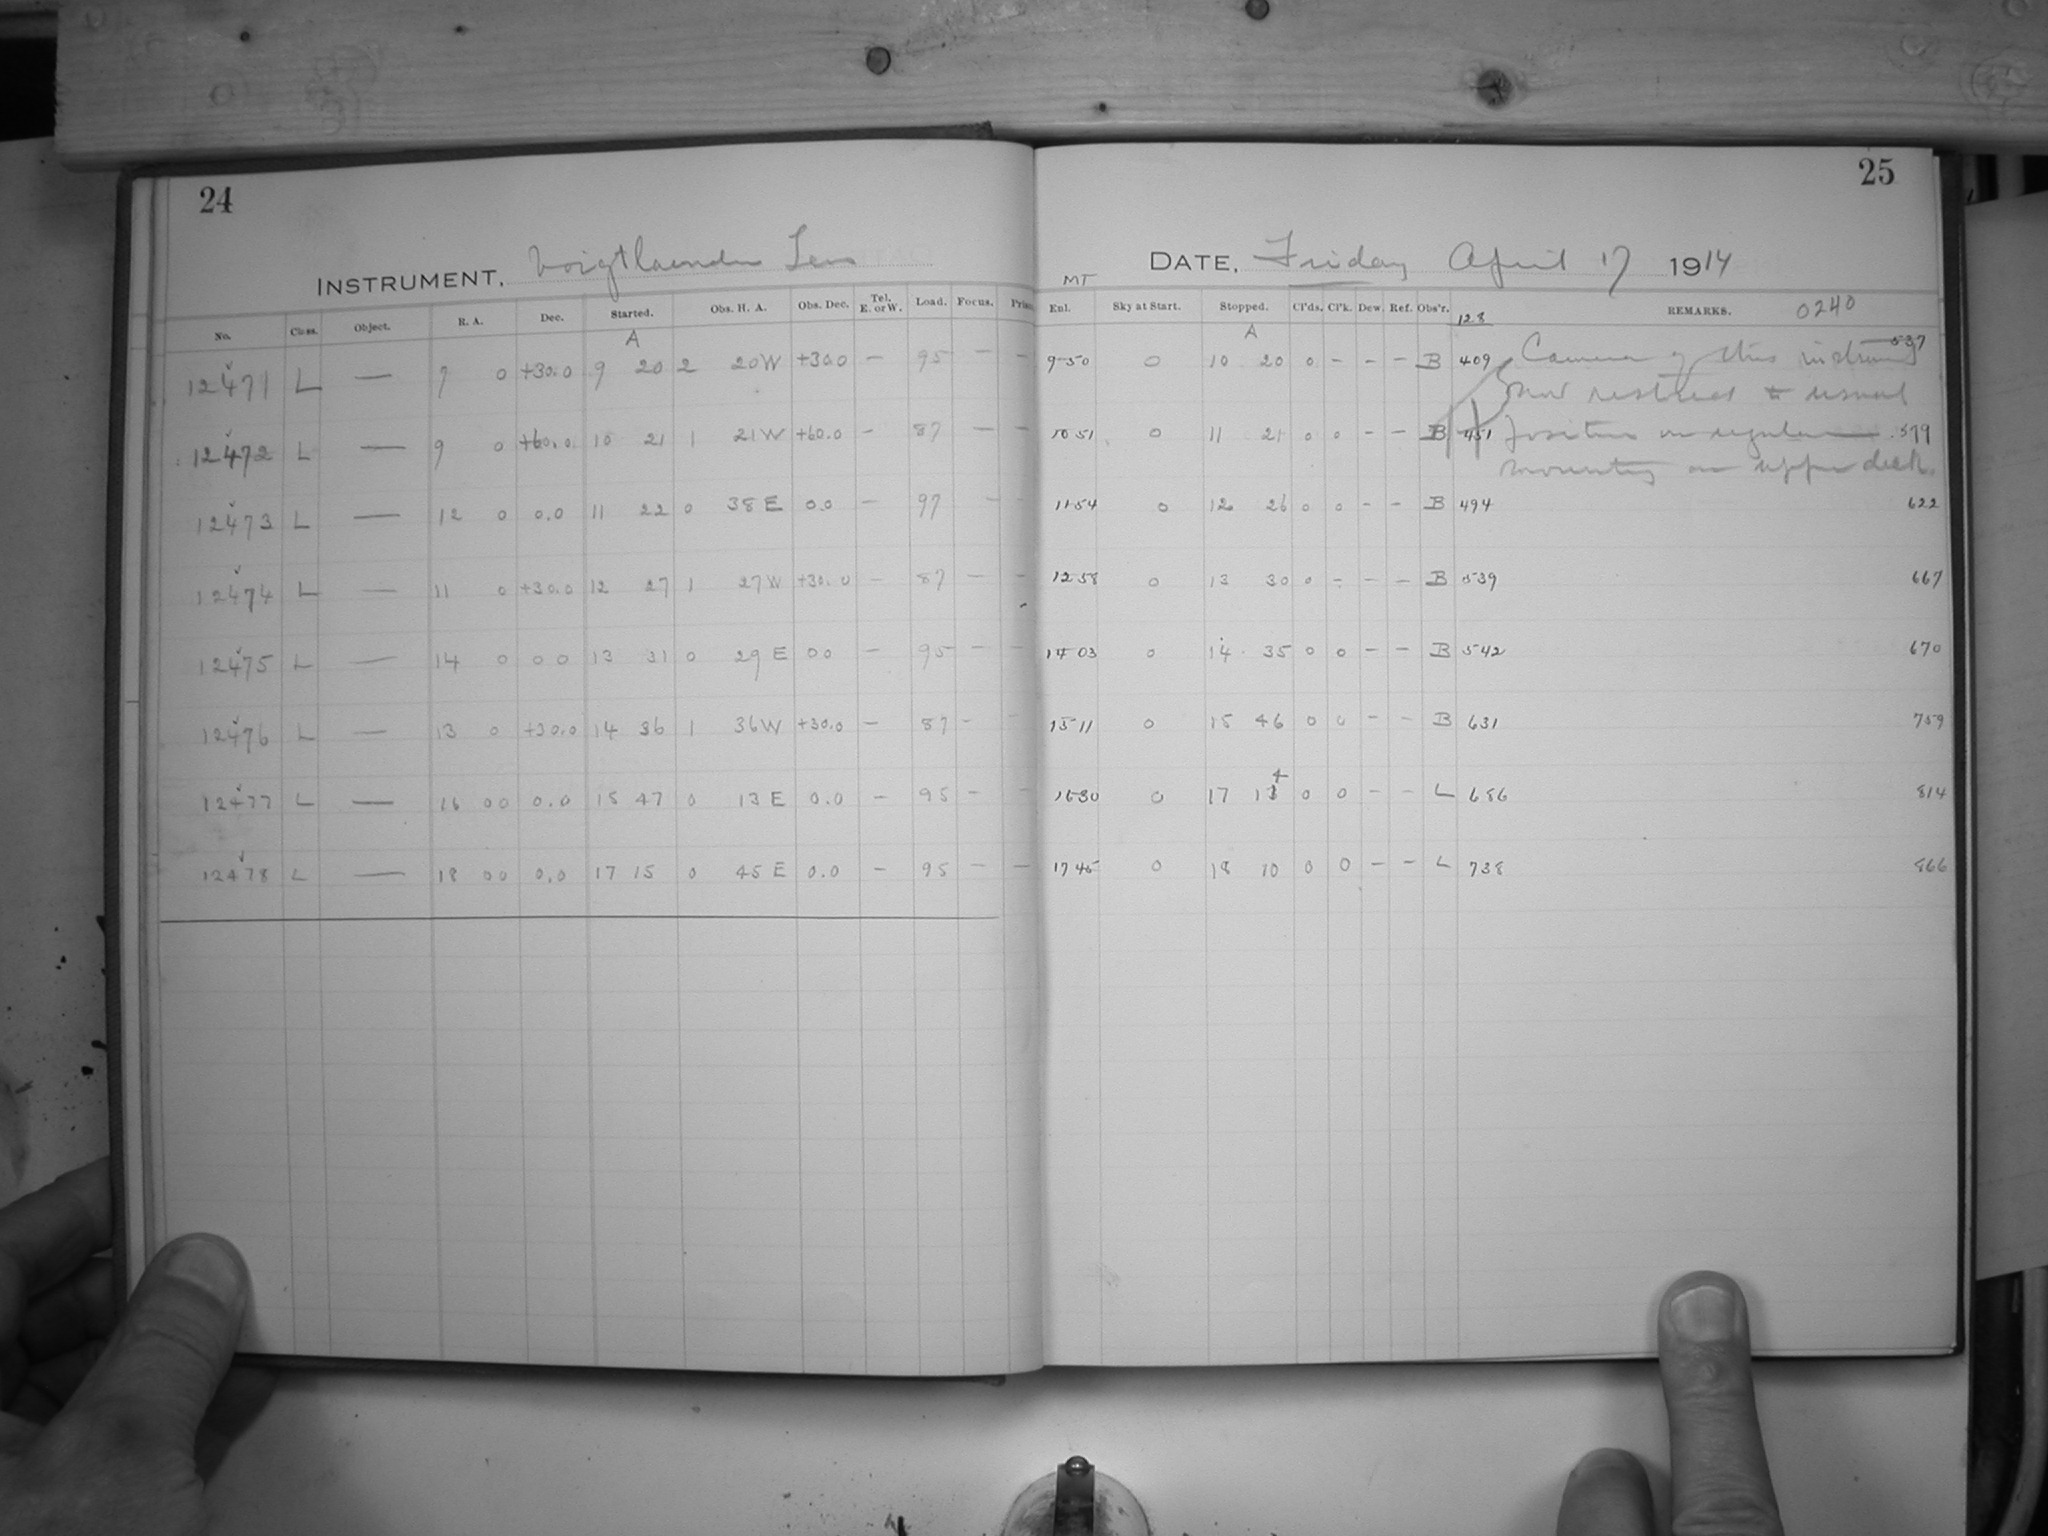 24
25
INSTRUMENT, Voigtlaender Lens
DATE, Friday April 17 1914
MT
No. Class. Object. R. A. Dec. Started. Obs. H. A. Obs. Dec. Tel. E. or W. Load. Focus. Enl. Sky at Start. Stopped. Cl'ds. Cl'k. Dew. Ref. Obs'r. 128 REMARKS. 0240
A A
12471 L — 9 0 +30.0 9 20 2 20 W +30.0 — 95 — — 9 50 0 10 20 0 — — — B 409 Camera of this instrument 537
now restored to usual
12472 L — 9 0 +60.0 10 21 1 21 W +60.0 — 87 — — 10 51 0 11 21 0 0 — — B 451 position on regular 579
mounting on upper deck.
12473 L — 12 0 0.0 11 22 0 38 E 0.0 — 97 — — 11 54 0 12 26 0 0 — — B 494 622
12474 L — 11 0 +30.0 12 27 1 27 W +30.0 — 87 — — 12 58 0 13 30 0 — — — B 539 667
12475 L — 14 0 0 0 13 31 0 29 E 0 0 — 95 — — 14 03 0 14 35 0 0 — — B 542 670
12476 L — 13 0 +30.0 14 36 1 36 W +30.0 — 87 — — 15 11 0 15 46 0 0 — — B 631 759
12477 L — 16 00 0.0 15 47 0 13 E 0.0 — 95 — — 16 30 0 17 14 0 0 — — L 686 814
12478 L — 18 00 0.0 17 15 0 45 E 0.0 — 95 — — 17 45 0 18 10 0 0 — — L 738 866